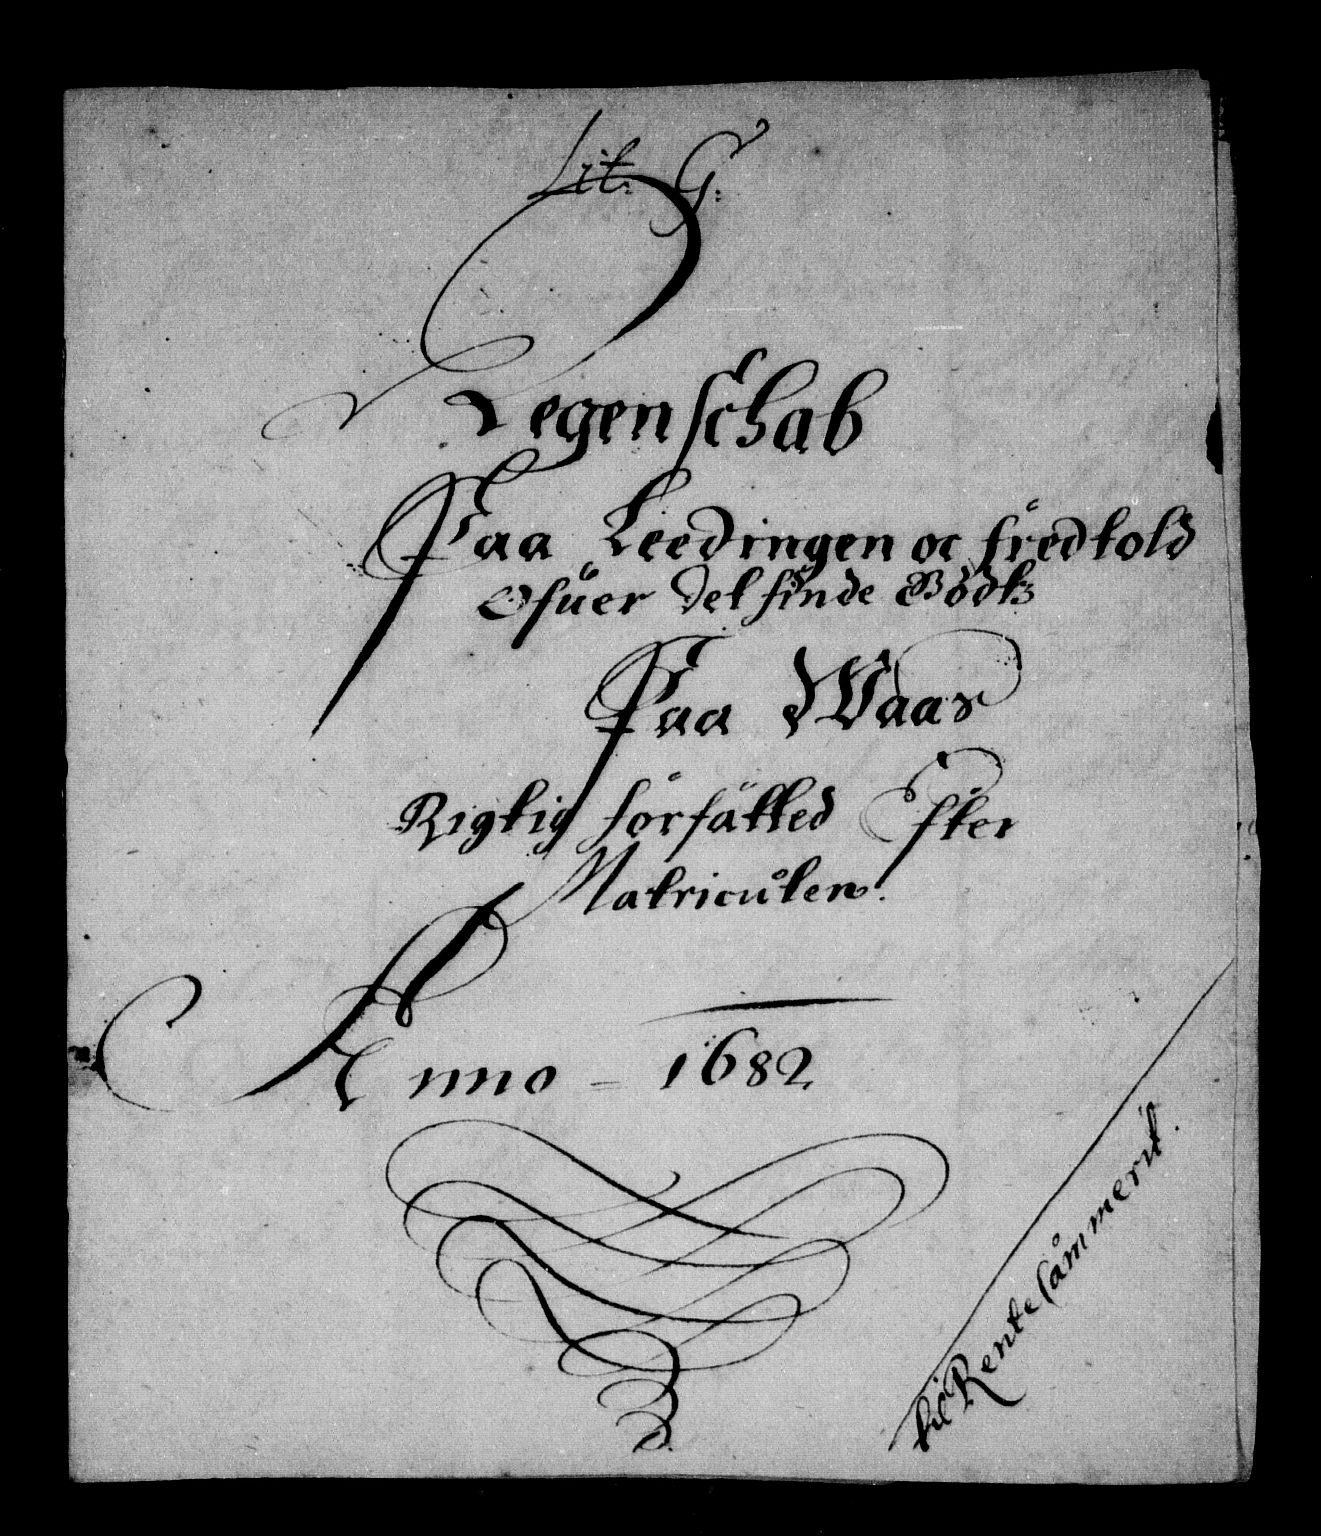 Lit: G:
Regenschab
Paa Leedingen oc fredtold
Ofuer
Paa Waar
Rigtig forfatted Efter
Matriculen.
Anno - 1682
til Rentecammerit.